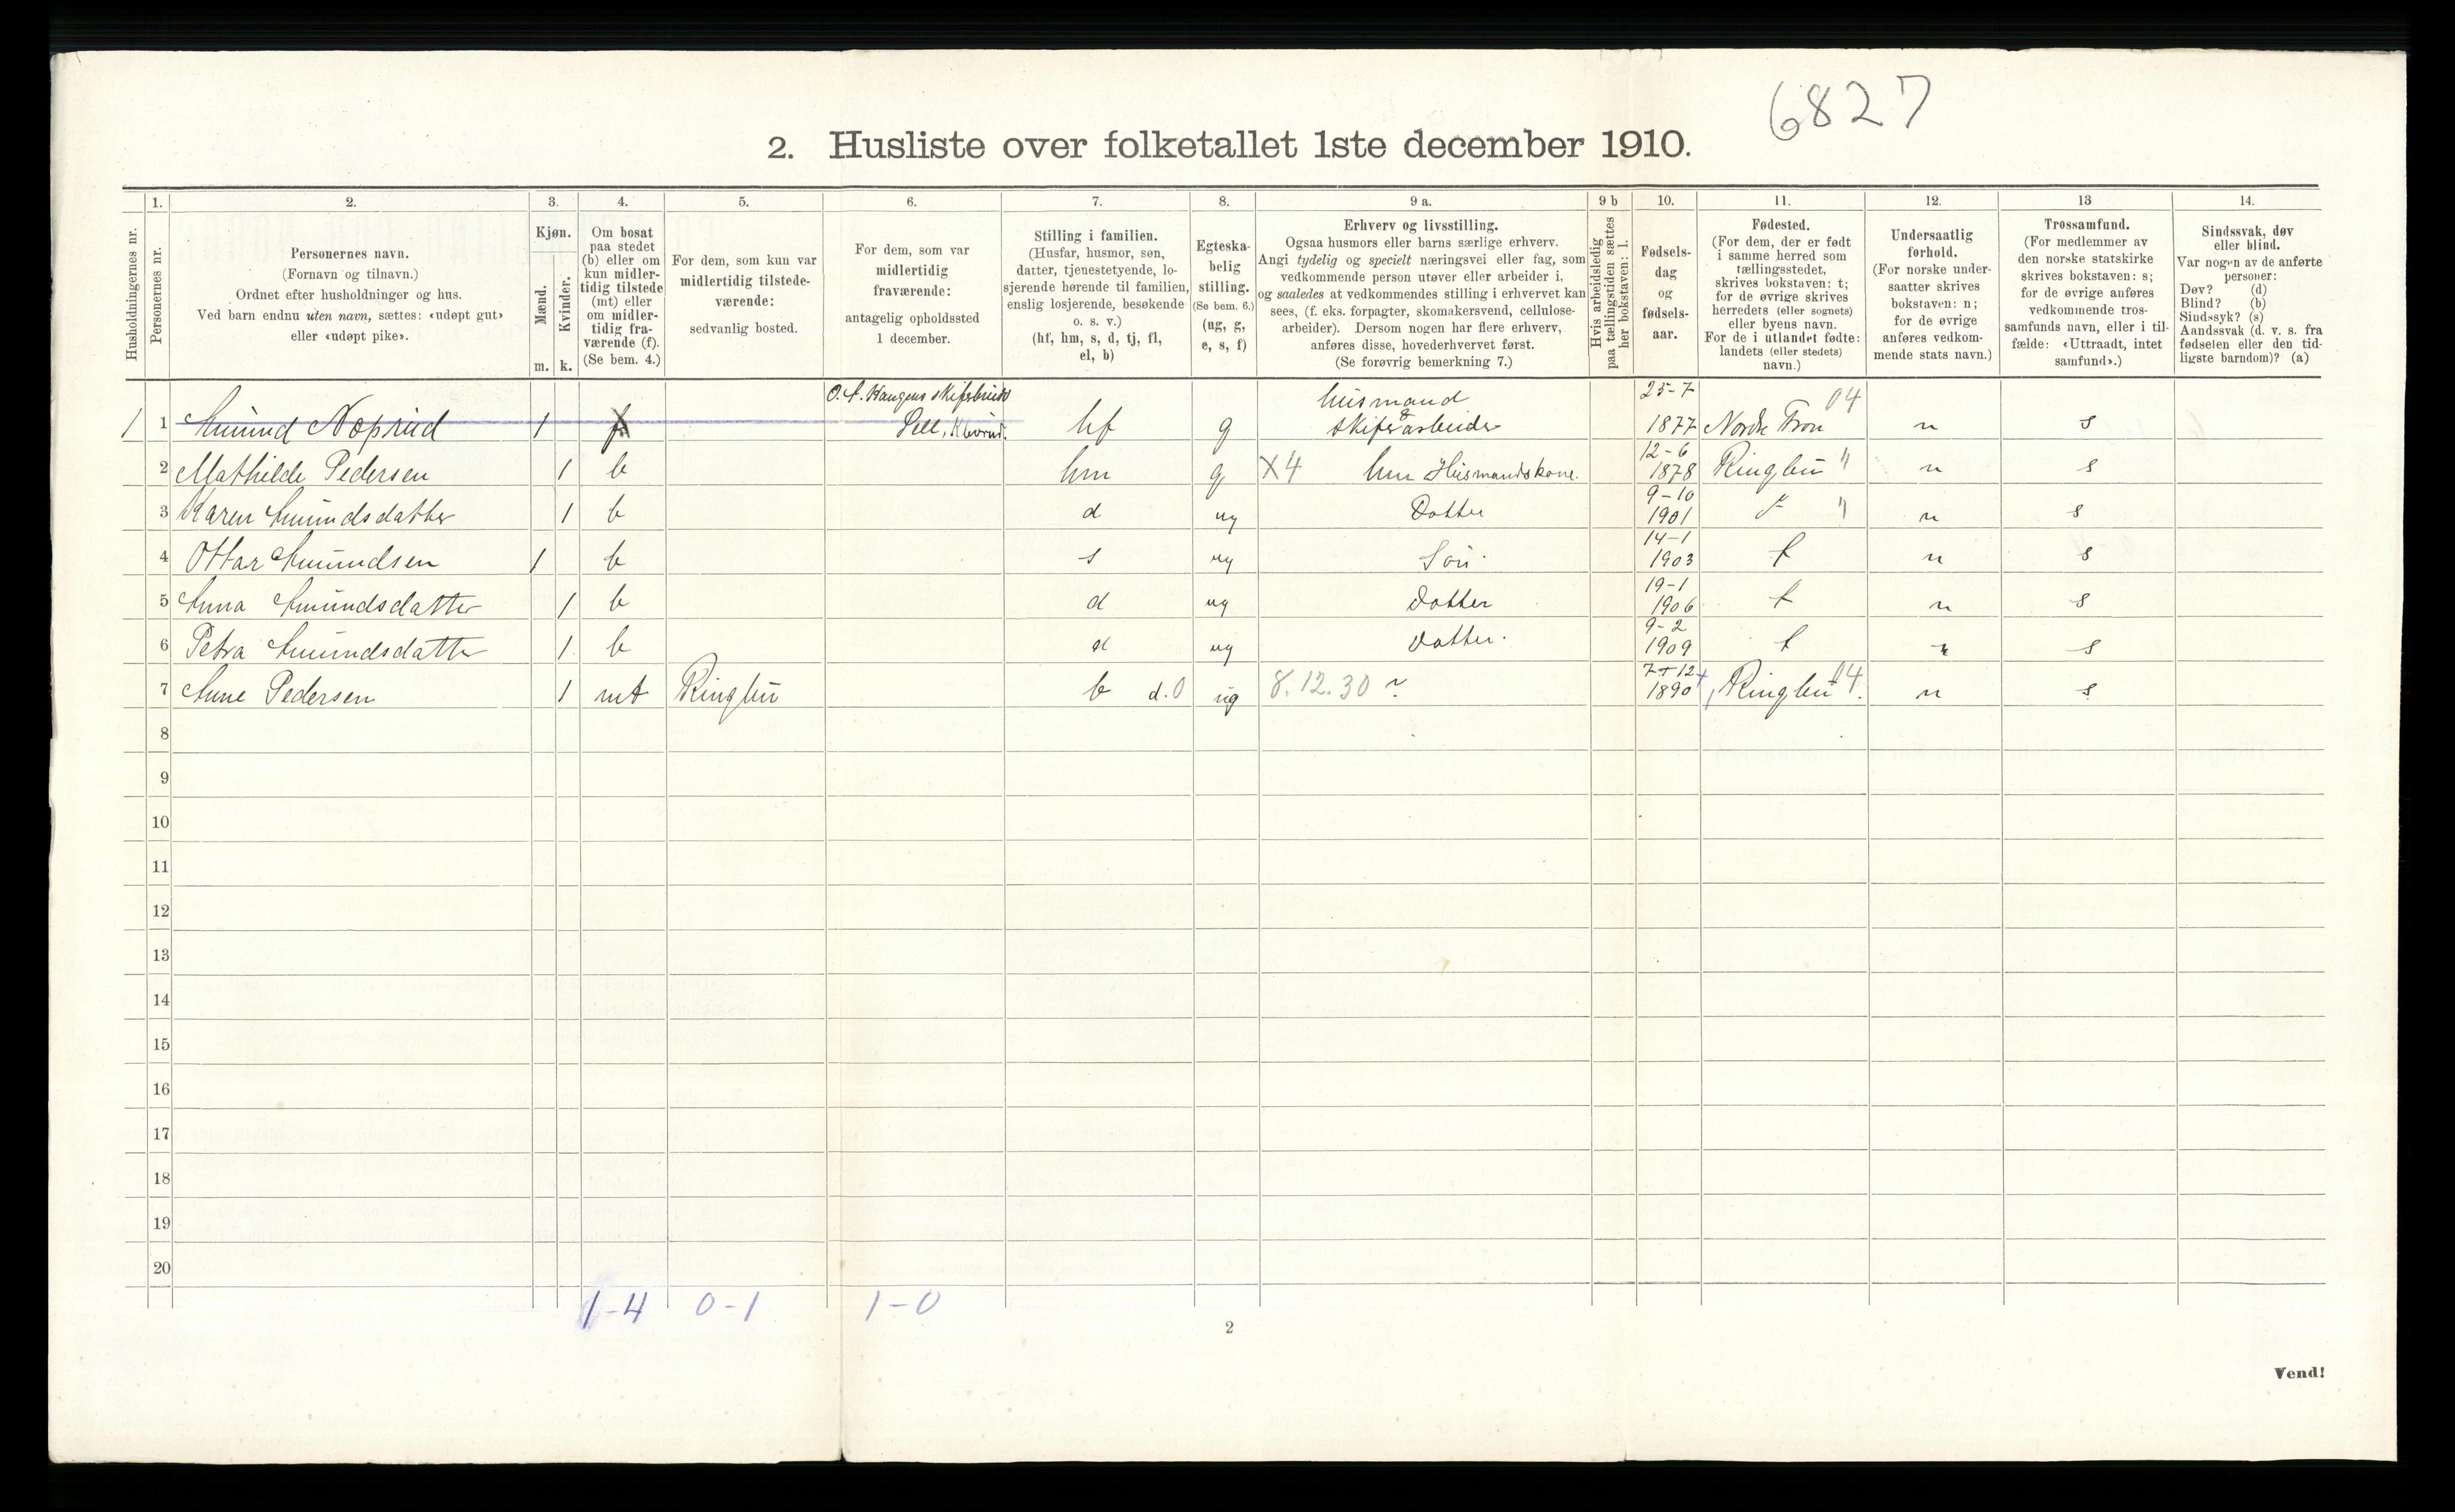 6827
2. Husliste over folketallet 1ste december 1910.
Husholdningernes nr.
1.
Personernes nr.
2.
Personernes navn.
(Fornavn og tilnavn.)
Ordnet efter husholdninger og hus.
Ved barn endnu uten navn, sættes: «udøpt gut»
eller «udøpt pike».
3.
Kjøn.
Mænd.
Kvinder.
m. k.
4.
Om bosat
paa stedet
(b) eller om
kun midler-
tidig tilstede
(mt) eller
om midler-
tidig fra-
værende (f).
(Se bem. 4.)
5.
For dem, som kun var
midlertidig tilstede-
værende:
sedvanlig bosted.
6.
For dem, som var
midlertidig
fraværende:
antagelig opholdssted
1 december.
7.
Stilling i familien.
(Husfar, husmor, søn,
datter, tjenestetyende, lo-
sjerende hørende til familien,
enslig losjerende, besøkende
o. s. v.)
(hf, hm, s, d, tj, fl,
el, b)
8.
Egteska-
belig
stilling.
(Se bem. 6.)
(ug, g,
e, s, f)
9 a.
Erhverv og livsstilling.
Ogsaa husmors eller barns særlige erhverv.
Angi tydelig og specielt næringsvei eller fag, som
vedkommende person utøver eller arbeider i,
og saaledes at vedkommendes stilling i erhvervet kan
sees, (f. eks. forpagter, skomakersvend, cellulose-
arbeider). Dersom nogen har flere erhverv,
anføres disse, hovederhvervet først.
(Se forøvrig bemerkning 7.)
9 b
Hvis arbeidsledig
paa tællingstiden sættes
her bokstaven: l.
10.
Fødsels-
dag
og
fødsels-
aar.
11.
Fødested.
(For dem, der er født
i samme herred som
tællingsstedet,
skrives bokstaven: t;
for de øvrige skrives
herredets (eller sognets)
eller byens navn.
For de i utlandet fødte:
landets (eller stedets)
navn.)
12.
Undersaatlig
forhold.
(For norske under-
saatter skrives
bokstaven: n;
for de øvrige
anføres vedkom-
mende stats navn.)
13
Trossamfund.
(For medlemmer av
den norske statskirke
skrives bokstaven: s;
for de øvrige anføres
vedkommende tros-
samfunds navn, eller i til-
fælde: «Uttraadt, intet
samfund».)
14.
Sindssvak, døv
eller blind.
Var nogen av de anførte
personer:
Døv? (d)
Blind? (b)
Sindssyk? (s)
Aandssvak (d. v. s. fra
fødselen eller den tid-
ligste barndom)? (a)
husmand 25-7 04
1 1 Amund Nøprud 1 f Sell, hf g & skiferarbeider 1877 Nordre Fron n s
2 Mathilde Pedersen 1 b hm g X4 hm Husmandskone. 12-6 1878 Ringbu " n s
3 Karen Amundsdatter 1 b d ug Datter 9-10 1901 t " n s
4 Ottar Amundsen 1 b s ug Søn. 14-1 1903 t n s
5 Anna Amundsdatter 1 b d ug Datter 19-1 1906 t n s
6 Petra Amundsdatter 1 b d ug Datter. 9-2 1909 t n s
7 Anne Pedersen 1 mt Ringbu b d.0 ug 8.12.30 7-12 1890 Ringbu 04. n s
8
9
10
11
12
13
14
15
16
17
18
19
20
1-4 0-1 1-0
2
Vend!